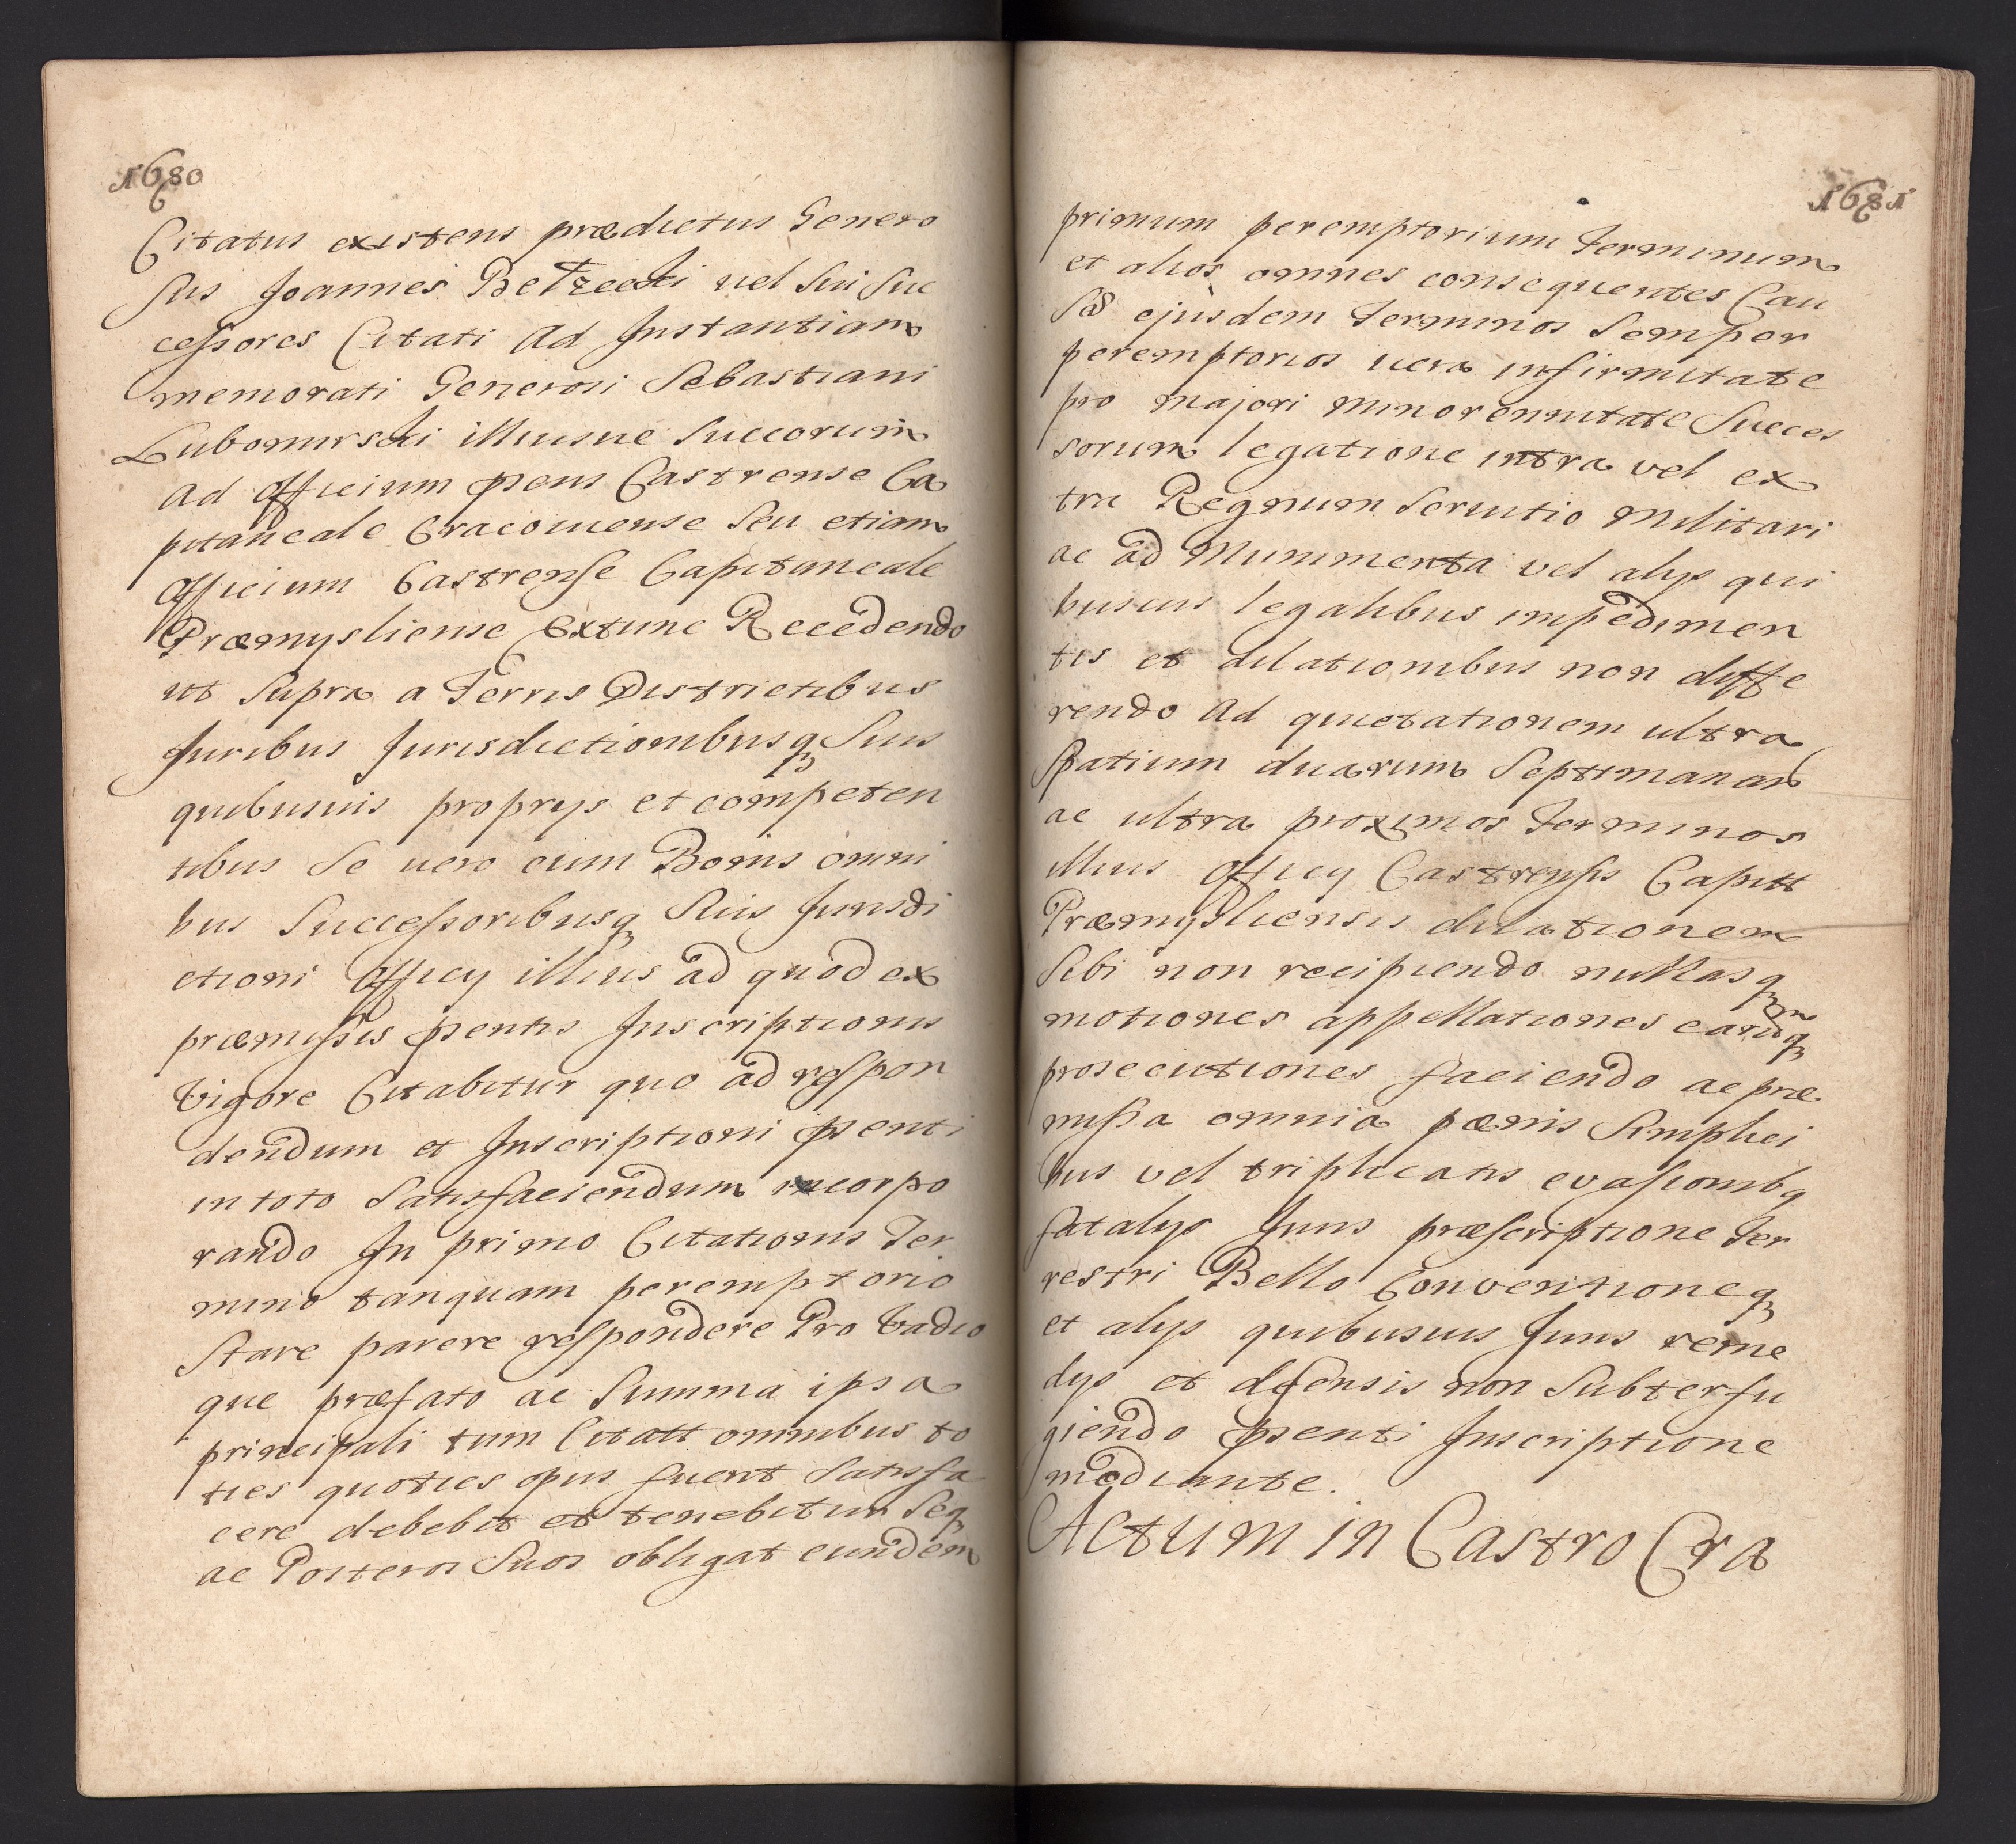 1680
Citatus existens prædictus Genero
sus Joannes Bełzecki vel sui suc
cessores Citati Ad Instantiam
memorati Generosi Sebastiani
Lubomirscki illiusue Succorum
ad officium pñs Castrense Ca
pitaneale Cracouiense seu etiam
officium Castrense Capitaneale
Præmysliense Extunc Recedendo
ut supra a Terris Districtibus
Juribus Jurisdictionibusq suis
quibusuis proprijs et competen
tibus se uero cum Bonis omni
bus successoribusq suis Jurisdi
ctioni officij illius ad quod ex
præmissis pñtis Inscriptionis
vigore Citabitur quo ad respon
dendum et Inscriptioni pñti
in toto satisfaciendum incorpo
rando In primo Citationis Ter
mino tanquam peremptorio
stare parere respondere Pro Vadio
que præfato ac summa ipsa
principali tum Citatt omnibus to
ties quoties opus fuerit satisfa
cere debebit et tenebitur seq
ac Posteros suos obligat eundem
1681
primum peremptorium Terminum
et alios omnes consequentes Cau
sæ ejusdem Terminos semper
peremptorios uera infirmitate
pro majori minorennitate succes
sorum legatione intra vel ex
tra Regnum seruitio Militari
ac ad Munimenta vel alijs qui
busuis legalibus impedimen
tis et dilationibus non diffe
rendo ad quietationem ultra
spatium duarum septimanar
ac ultra proximos Terminos
illius officij Castrensis Capitt
Præmysliensis dilationem
sibi non recipiendo nullasq
motiones appellationes earumq
prosecutiones faciendo ac præ
missa omnia pænis simplici
bus vel triplicatis evasionibq
fatalijs Juris præscriptione Ter
restri Bello Conventioneq
et alijs quibusuis Juris reme
dijs et defensis non subterfu
giendo pñti Inscriptione
mediante.
Actum in Castro Cra